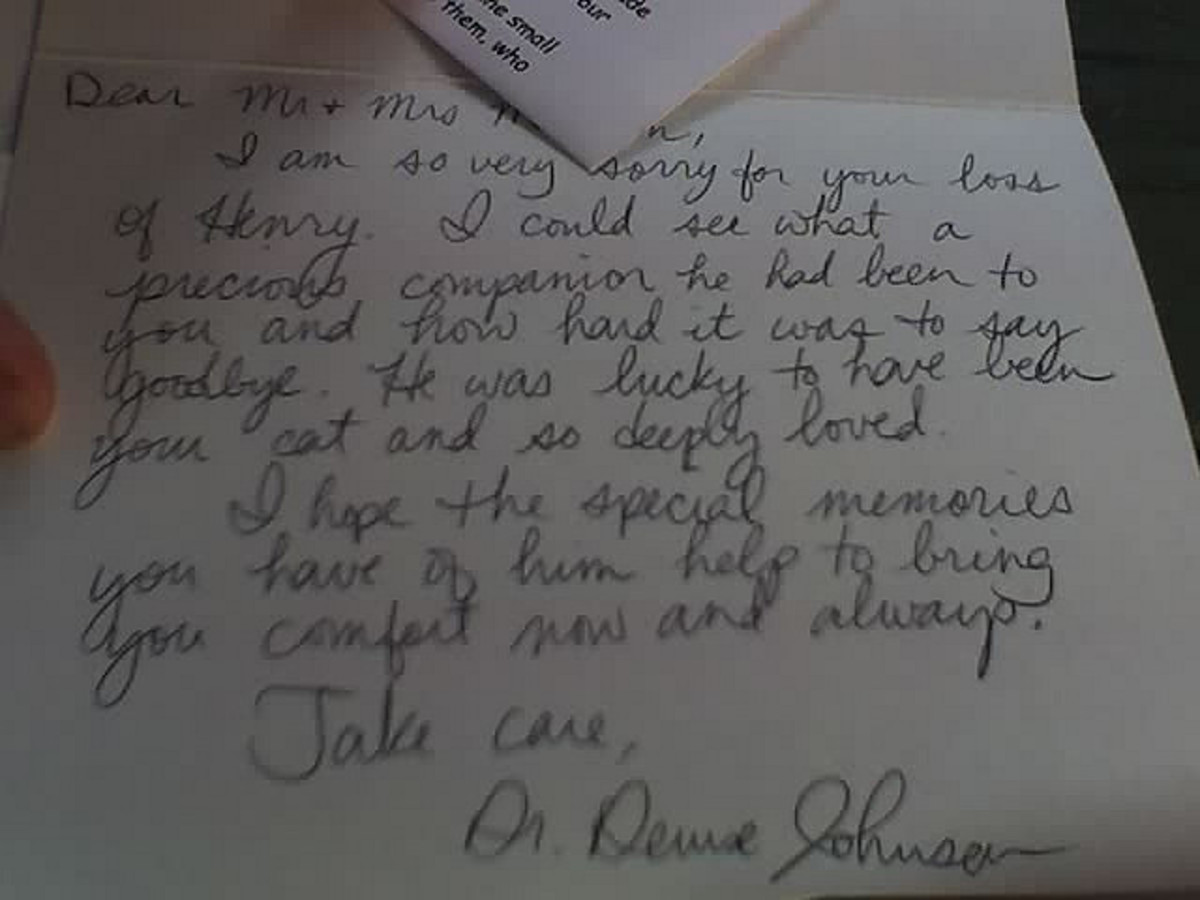 ide
our
ne small
them, who
Dear Mr + Mrs
I am so very sorry for your loss
of Henry. I could see what a
precious companion he had been to
you and how hard it was to say
goodbye. He was lucky to have been
your cat and so deeply loved.
I hope the special memories
you have of him help to bring
you comfort now and always.
Take care,
Dr. Denise Johnson